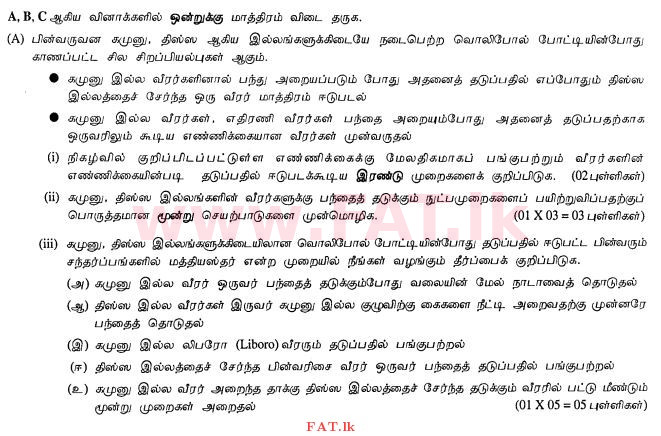 A, B, C ஆகிய வினாக்களில் ஒன்றுக்கு மாத்திரம் விடை தருக.
(A) பின்வருவன கமுனு, திஸ்ஸ ஆகிய இல்லங்களுக்கிடையே நடைபெற்ற வொலிபோல் போட்டியின்போது
காணப்பட்ட சில சிறப்பியல்புகள் ஆகும்.
● கமுனு இல்ல வீரர்களினால் பந்து அறையப்படும் போது அதனைத் தடுப்பதில் எப்போதும் திஸ்ஸ
இல்லத்தைச் சேர்ந்த ஒரு வீரர் மாத்திரம் ஈடுபடல்
● கமுனு இல்ல வீரர்கள், எதிரணி வீரர்கள் பந்தை அறையும்போது அதனைத் தடுப்பதற்காக
ஒருவரிலும் கூடிய எண்ணிக்கையான வீரர்கள் முன்வருதல்
(i) நிகழ்வில் குறிப்பிடப்பட்டுள்ள எண்ணிக்கைக்கு மேலதிகமாகப் பங்குபற்றும் வீரர்களின்
எண்ணிக்கையின்படி தடுப்பதில் ஈடுபடக்கூடிய இரண்டு முறைகளைக் குறிப்பிடுக. (02 புள்ளிகள்)
(ii) கமுனு, திஸ்ஸ இல்லங்களின் வீரர்களுக்கு பந்தைத் தடுக்கும் நுட்பமுறைகளைப் பயிற்றுவிப்பதற்குப்
பொருத்தமான மூன்று செயற்பாடுகளை முன்மொழிக. (01 X 03 = 03 புள்ளிகள்)
www.FAT.lk
(iii) கமுனு, திஸ்ஸ இல்லங்களுக்கிடையிலான வொலிபோல் போட்டியின்போது தடுப்பதில் ஈடுபட்ட பின்வரும்
சந்தர்ப்பங்களில் மத்தியஸ்தர் என்ற முறையில் நீங்கள் வழங்கும் தீர்ப்பைக் குறிப்பிடுக.
(அ) கமுனு இல்ல வீரர் ஒருவர் பந்தைத் தடுக்கும்போது வலையின் மேல் நாடாவைத் தொடுதல்
(ஆ) திஸ்ஸ இல்ல வீரர்கள் இருவர் கமுனு இல்ல குழுவிற்கு கைகளை நீட்டி அறைவதற்கு முன்னரே
பந்தைத் தொடுதல்
(இ) கமுனு இல்ல லிபரோ (Liboro) வீரரும் தடுப்பதில் பங்குபற்றல்
(ஈ) திஸ்ஸ இல்லத்தைச் சேர்ந்த பின்வரிசை வீரர் ஒருவர் பந்தைத் தடுப்பதில் பங்குபற்றல்
(உ) கமுனு இல்ல வீரர் அறைந்த தாக்கு திஸ்ஸ இல்லத்தைச் சேர்ந்த தடுக்கும் வீரரில் பட்டு மீண்டும்
மூன்று முறைகள் அறைதல் (01 X 05 = 05 புள்ளிகள்)
FAT.lk